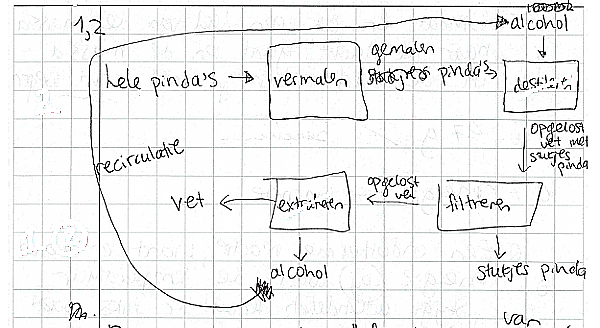 1,2
alcohol
hele pinda's → vermalen
gemalen
pinda's → destileren
opgelost
vet met
stukjes
pinda
recirculatie
vet ← extraheren
opgelost
vet
← filtreren
alcohol
stukjes pinda
van